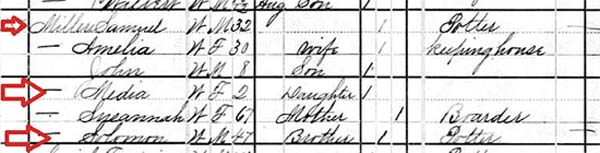 W M Aug Son
Miller Samuel W M 32 1 Potter
— Amelia W F 30 wife 1 keeping house
John W M 8 Son 1
— Media W F 2 Daughter 1
— Suseannah W F 67 Mother 1 Boarder
— Solomon W M 47 Brother 1 Potter